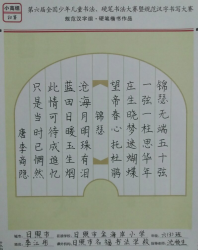 小高组
第六届全国少年儿童书法、硬笔书法大赛暨规范汉字书写大赛
锦瑟无端五十弦
一弦一柱思华年
庄生晓梦迷蝴蝶
望帝春心托杜鹃
锦瑟
沧海月明珠有泪
蓝田日暖玉生烟
此情可待成追忆
只是当时已惘然
唐李商隐
日照市 日照市金海岸小学